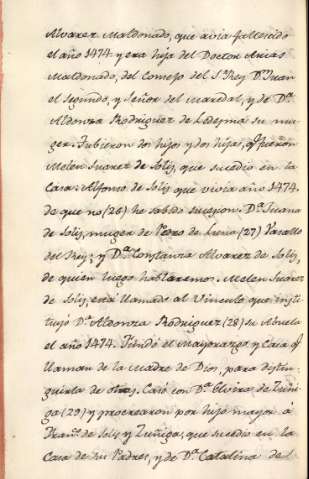 Alvarez Maldonado, que avia fallecido
el año 1474 y era hija del Doctor Arias
Maldonado, del Consejo del Sr. Rey Dn. Juan
el segundo, y Señor del Maredal, y de Da.
Aldonza Rodriguez de Ledesma su mu-
ger. Tubieron dos hijos y dos hijas, q. fueron
Melen Suarez de Solis, que sucedio en la
Casa: Alfonso de Solis, que vivia año 1474.
de que no (26) he sabido sucesion. Da. Juana
de Solis, muger de Pedro de (27) Vasallo
del Rey; y Da. Constanza Alvarez de Solis,
de quien luego hablaremos. Melen Suarez
de Solis, esta llamado al Vinculo que insti-
tuyó Da. Aldonza Rodriguez (28) su Abuela
el año 1474. fundó el Mayorazgo y Casa q.
llaman de la Madre de Dios, para distin-
guirla de otras. Casó con Da. Elvira de Zuñi-
ga (29) y procrearon por hijo mayor á
Franco. de Solis y Zuñiga, que sucedio en la
Casa de sus Padres, y de Da. Catalina de